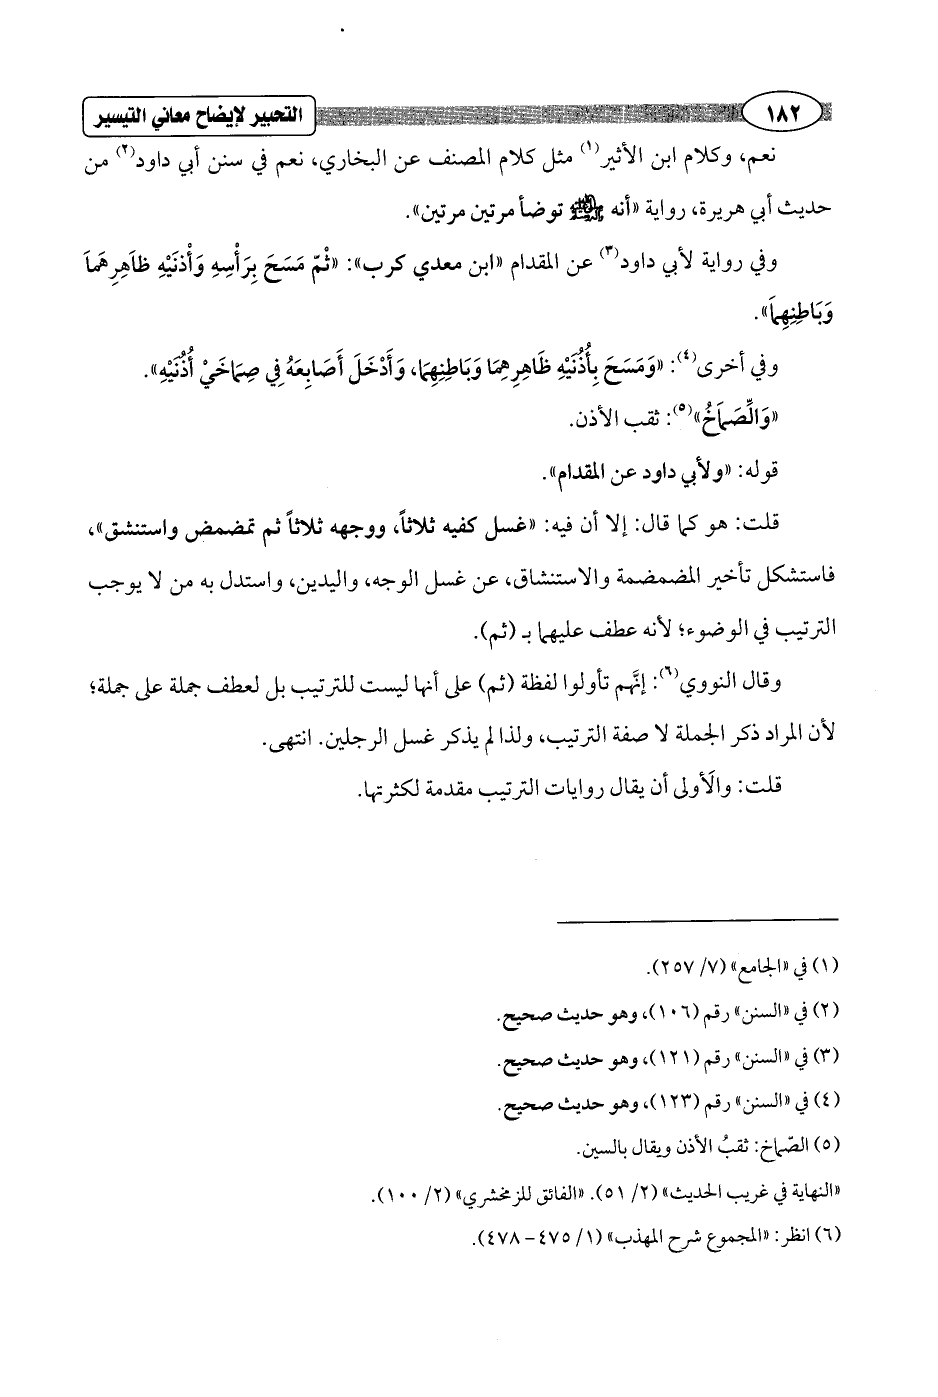 ١٨٢ التحبير لإيضاح معاني التيسير
نعم، وكلام ابن الأثير(١) مثل كلام المصنف عن البخاري، نعم في سنن أبي داود(٢) من
حديث أبي هريرة، رواية «أنه ﷺ توضأ مرتين مرتين».
وفي رواية لأبي داود(٣) عن المقدام «ابن معدي كرب»: «ثُمّ مَسَحَ بِرَأْسِهِ وَأُذنَيْهِ ظَاهِرِهَمَا
وَبَاطِنِهِمَا».
وفي أخرى(٤): «وَمَسَحَ بِأُذُنَيْهِ ظَاهِرِهِمَا وَبَاطِنِهِمَا، وَأَدْخَلَ أَصَابِعَهُ فِي صِمَاخَيْ أُذُنَيْهِ».
«وَالِّصمَاخُ»(٥): ثقب الأذن.
قوله: «ولأبي داود عن المقدام».
قلت: هو كما قال: إلا أن فيه: «غسل كفيه ثلاثاً، ووجهه ثلاثاً ثم تمضمض واستنشق»،
فاستشكل تأخير المضمضة والاستنشاق، عن غسل الوجه، واليدين، واستدل به من لا يوجب
الترتيب في الوضوء؛ لأنه عطف عليهما بـ (ثم).
وقال النووي(٦): إنَّهم تأولوا لفظة (ثم) على أنها ليست للترتيب بل لعطف جملة على جملة؛
لأن المراد ذكر الجملة لا صفة الترتيب، ولذا لم يذكر غسل الرجلين. انتهى.
قلت: والَأولى أن يقال روايات الترتيب مقدمة لكثرتها.
(١) في «الجامع» (٧/ ٢٥٧).
(٢) في «السنن» رقم (١٠٦)، وهو حديث صحيح.
(٣) في «السنن» رقم (١٢١)، وهو حديث صحيح.
(٤) في «السنن» رقم (١٢٣)، وهو حديث صحيح.
(٥) الصّماخ: ثقبُ الأذن ويقال بالسين.
«النهاية في غريب الحديث» (٢/ ٥١). «الفائق للزمخشري» (٢/ ١٠٠).
(٦) انظر: «المجموع شرح المهذب» (١/ ٤٧٥- ٤٧٨).